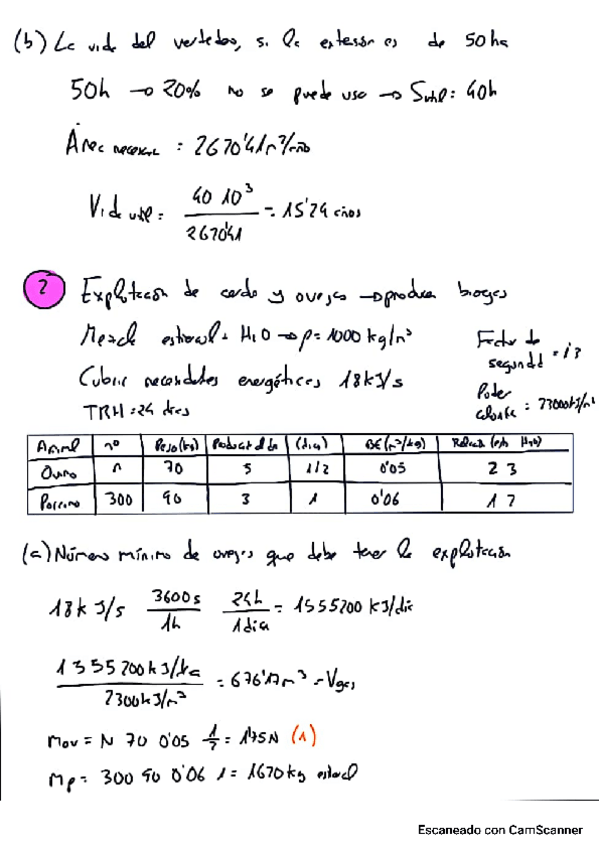 (b) La vida del vertedero, si la extensión es de 50ha
50h → 20% no se puede usar → Sutil: 40h
Área necesaria : 2670'41m²/año
Vida util = 40 10³ / 2670'41 = 15'24 años
2 Explotación de cerdo y ovejas → produce biogas
Mezcla estiercol + H2O → ρ = 1000 kg/m³
Factor de seguridad = 1'3
Cubrir necesidades energéticas 18kJ/s
Poder calorífico : 23000kJ/m³
TRH = 24 dias
Animal nº Peso(kg) (dia) GE(m³/kg)
Ovino n 70 5 1/2 0'05 2 3
Porcino 300 90 3 1 0'06 1 2
(a) Número mínimo de ovejas que debe tener la explotación
18kJ/s 3600s/1h 24h/1dia = 1555200 kJ/dia
1555200kJ/dia / 2300kJ/m³ = 676'17m³ = Vgas
Mov = N 70 0'05 1/2 = 1'75N (1)
Mp = 300 90 0'06 1 = 1620kg estiercol
Escaneado con CamScanner